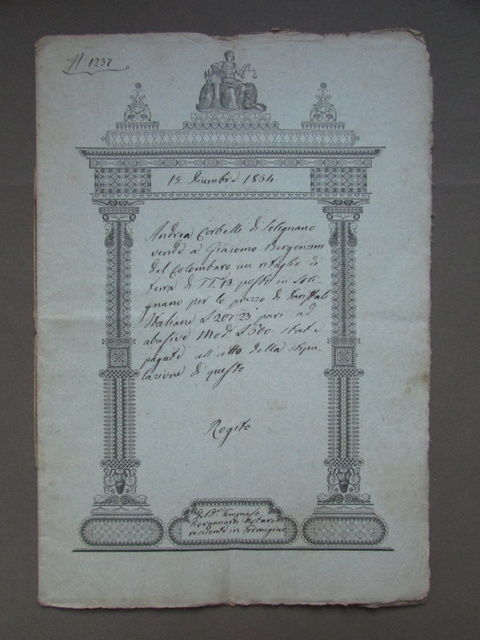 N 1237
15 Dicembre 1834
Andrea Corbelli di Solignano
vende a Giacomo Bergonzini
del Colombaro un ritaglio di
terra di posto in Soli-
gnano per lo prezzo di
Italiane L 207.23 pari ad
abusive Mod. L 560 state
pagate all'atto della stipu-
lazione di questo
Rogito
Notaro
residente in Formigine